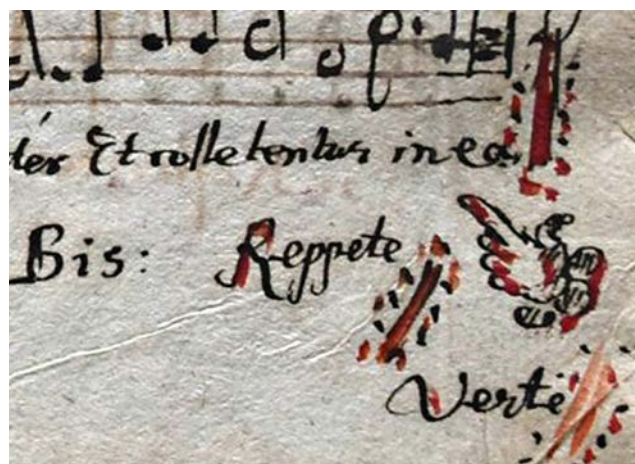 ter Et volletentur in ea.
Bis: Reppete
Verte